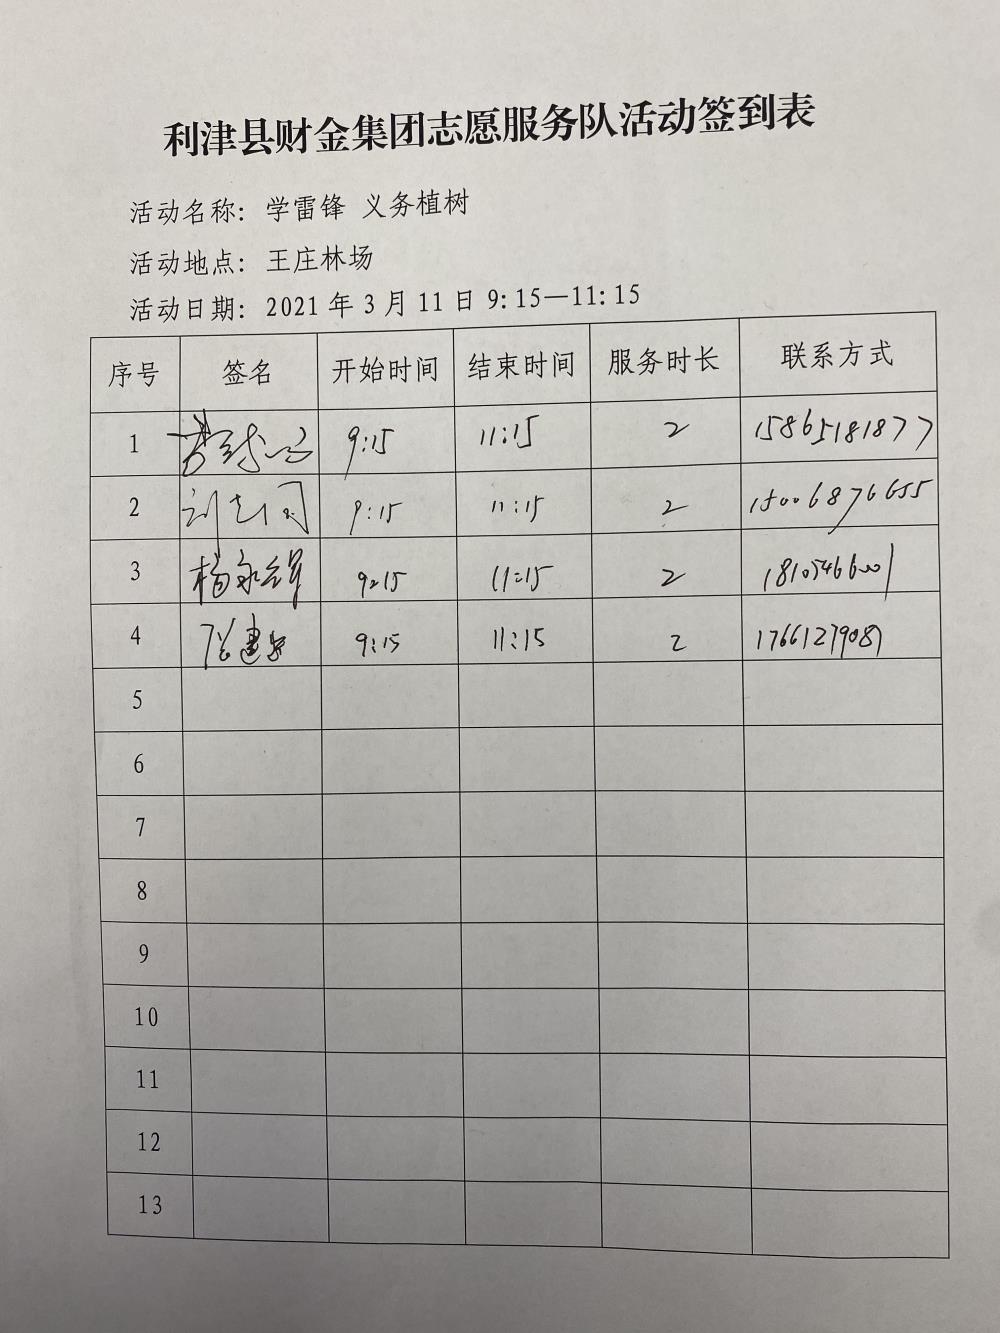 利津县财金集团志愿服务队活动签到表
活动名称: 学雷锋 义务植树
活动地点: 王庄林场
活动日期: 2021年3月11日 9:15—11:15
序号 签名 开始时间 结束时间 服务时长 联系方式
1 9:15 11:15 2 15865181877
2 9:15 11:15 2 15006876655
3 9:15 11:15 2 18105466001
4 9:15 11:15 2 17661279087
5
6
7
8
9
10
11
12
13